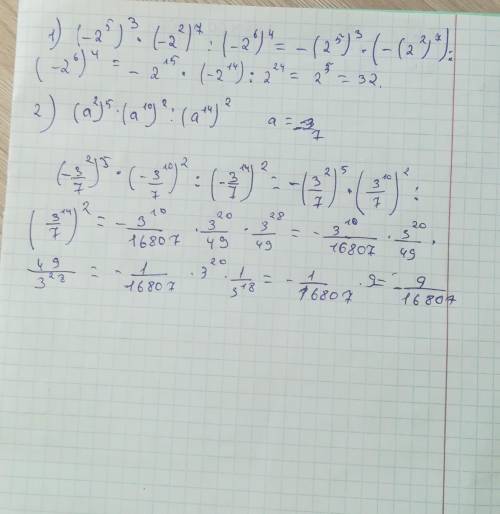 1) (-2⁵)³ · (-2²)⁷ : (-2⁶)⁴ = -(2⁵)³ · (-(2²)⁷):
(-2⁶)⁴ = -2¹⁵ · (-2¹⁴) : 2²⁴ = 2⁵ = 32.
2) (a²)⁵ · (a¹⁰)² : (a¹⁴)² a = -3/7
(-3²/7)⁵ · (-3¹⁰/7)² : (-3¹⁴/7)² = -(3²/7)⁵ · (3¹⁰/7)² :
(3¹⁴/7)² = -3¹⁰/16807 · 3²⁰/49 · 3²⁸/49 = -3¹⁰/16807 · 3²⁰/49 ·
49/3²⁸ = -1/16807 · 3²⁰ · 1/3¹⁸ = -1/16807 · 9 = -9/16807